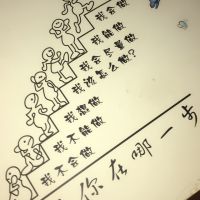 我会做
我能做
我会尽量做
我该怎么做？
我想做
我不能做
我不会做
你在哪一步